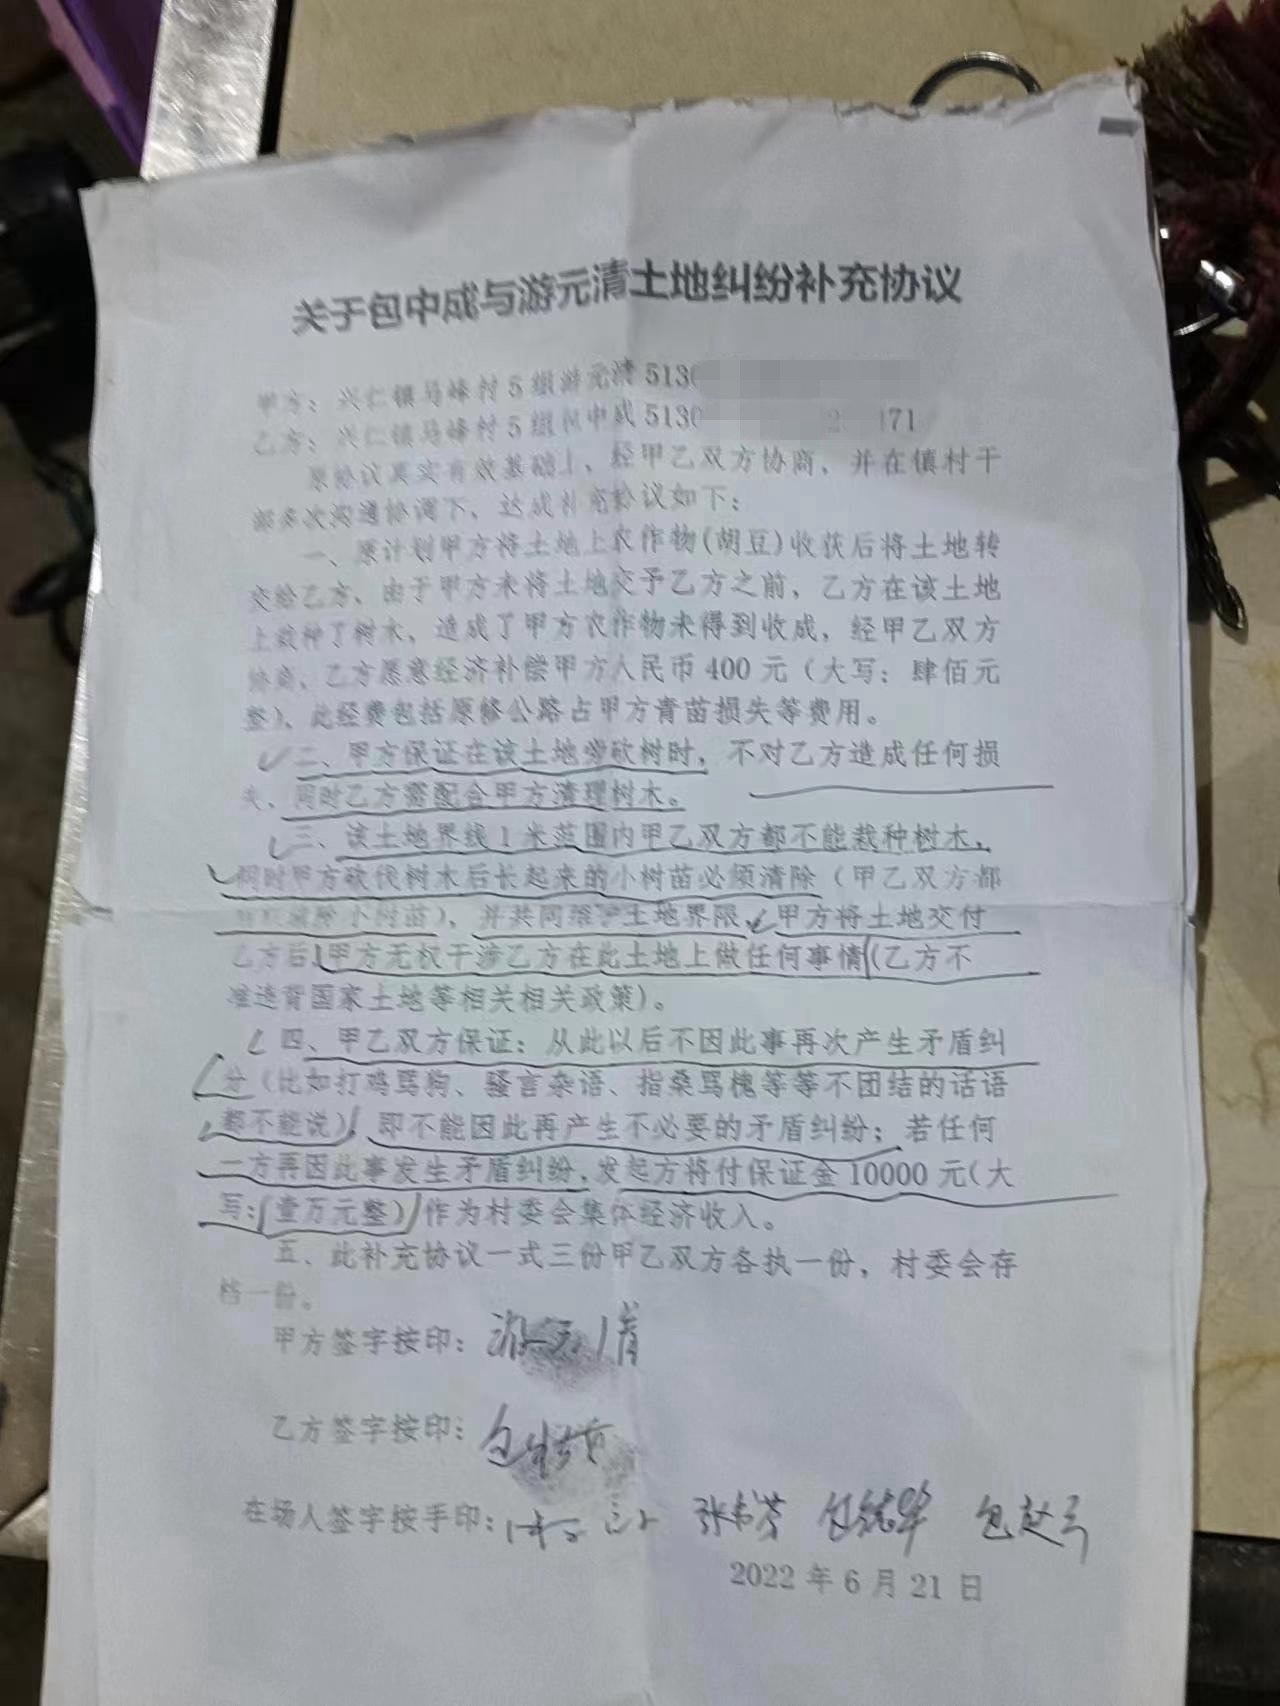 关于包中成与游元清土地纠纷补充协议
甲方：兴仁镇马峰村5组游元清 5130
乙方：兴仁镇马峰村5组包中成 5130 2 171
原协议真实有效基础上，经甲乙双方协商，并在镇村干
部多次沟通协调下，达成补充协议如下：
一、原计划甲方将土地上农作物(胡豆)收获后将土地转
交给乙方，由于甲方未将土地交予乙方之前，乙方在该土地
上栽种了树木，造成了甲方农作物未得到收成，经甲乙双方
协商，乙方愿意经济补偿甲方人民币400元（大写：肆佰元
整），此经费包括原修公路占甲方青苗损失等费用。
二、甲方保证在该土地旁砍树时，不对乙方造成任何损
失，同时乙方需配合甲方清理树木。
三、该土地界线1米范围内甲乙双方都不能栽种树木，
同时甲方砍伐树木后长起来的小树苗必须清除（甲乙双方都
清除小树苗），并共同 土地界限，甲方将土地交付
乙方后，甲方无权干涉乙方在此土地上做任何事情（乙方不
准违背国家土地等相关相关政策）。
四、甲乙双方保证：从此以后不因此事再次产生矛盾纠
分（比如打鸡骂狗、骚言杂语、指桑骂槐等等不团结的话语
都不能说），即不能因此再产生不必要的矛盾纠纷；若任何
一方再因此事发生矛盾纠纷，发起方将付保证金10000元（大
写：壹万元整）作为村委会集体经济收入。
五、此补充协议一式三份甲乙双方各执一份，村委会存
档一份。
甲方签字按印：游元清
乙方签字按印：包中成
在场人签字按手印： 张书芳 包赵云
2022年6月21日